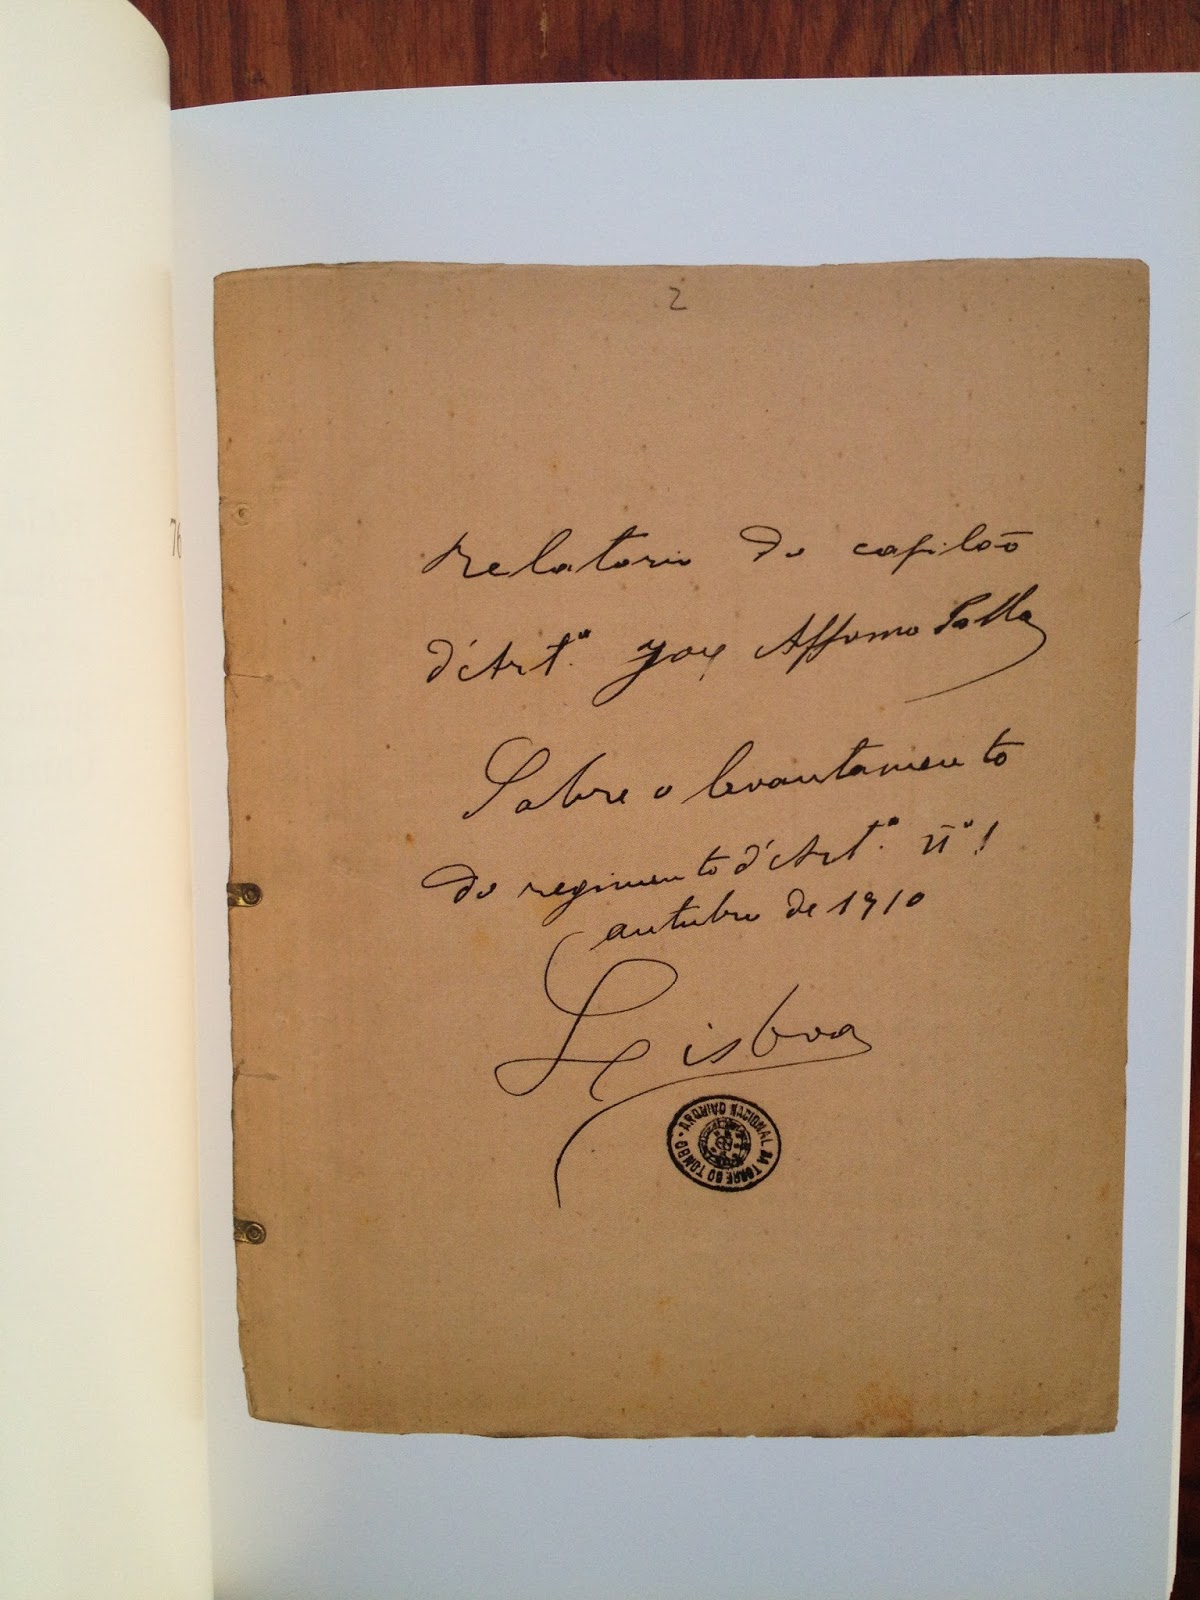 2
76
relatorio do capitão
d'Art.ª José Affonso Palla
Sobre o levantamento
do regimento d'Art.ª nº 1
outubro de 1910
Lisboa
ARQUIVO NACIONAL DA TORRE DO TOMBO